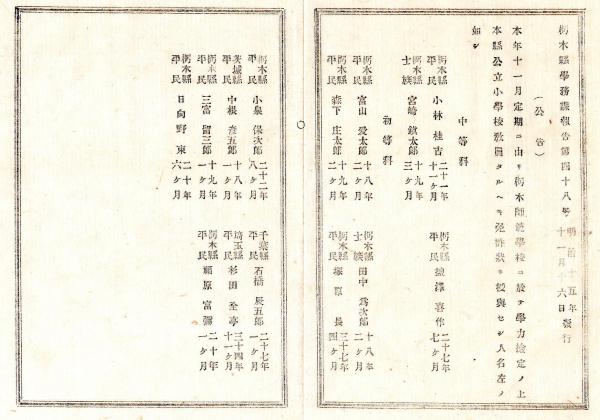 栃木縣學務課報告第四十八號 明治十五年十一月十六日發行
(公告)
本年十一月定期ニ由リ栃木師範學校ニ於テ學力檢定ノ上
本縣公立小學校敎員タルヘキ免許狀ヲ授與セシ人名左ノ
如シ
中等科
栃木縣平民 小林桂吉 二十一年十一ヶ月
栃木縣平民 澁澤喜作 二十七年七ヶ月
栃木縣士族 宮崎鎮太郎 十九年三ヶ月
初等科
栃木縣平民 富山愛太郎 十八年二ヶ月
栃木縣士族 田中爲次郎 十八年二ヶ月
栃木縣平民 森下庄太郎 十九年二ヶ月
栃木縣平民 塚原長 三十七年四ヶ月
栃木縣平民 小泉保次郎 二十二年八ヶ月
千葉縣平民 石橋辰五郎 二十七年二ヶ月
茨城縣平民 中根彦五郎 十八年一ヶ月
埼玉縣平民 杉田全亭 三十四年十一ヶ月
栃木縣平民 三富留三郎 十九年一ヶ月
栃木縣平民 福原富彌 二十年一ヶ月
栃木縣平民 日向野東 二十年六ヶ月